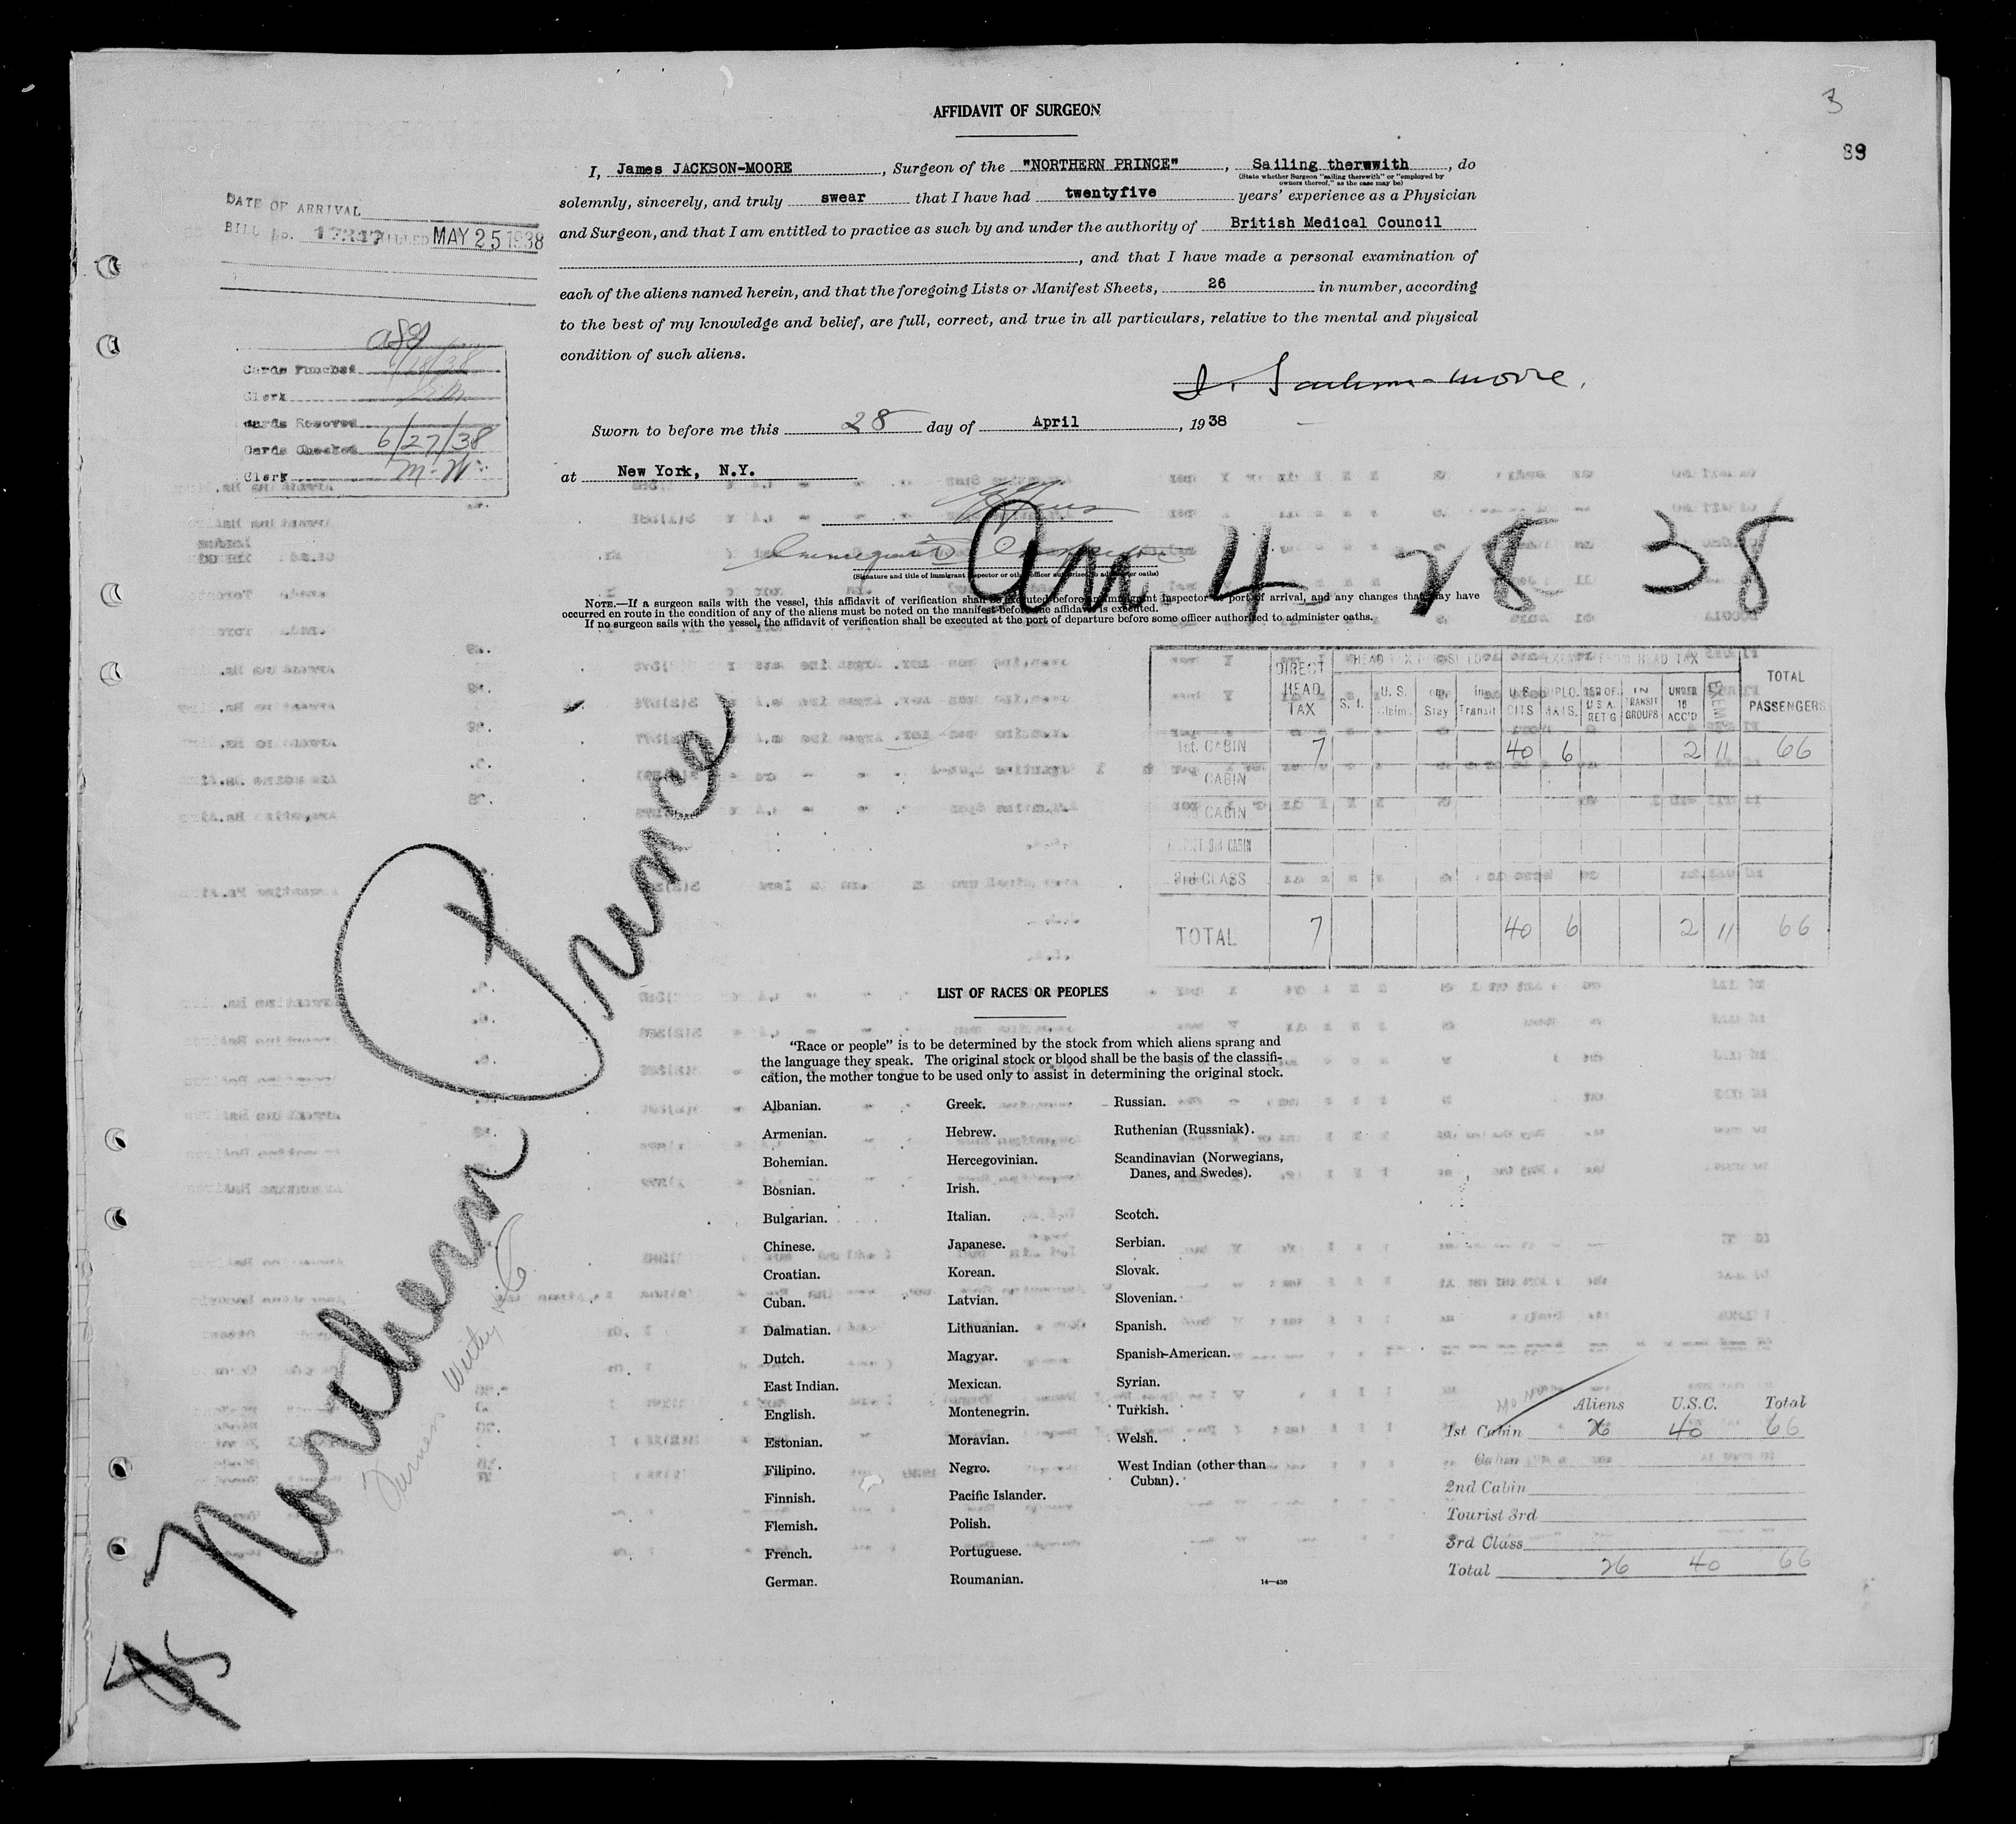 3
89
AFFIDAVIT OF SURGEON
I, James JACKSON-MOORE, Surgeon of the "NORTHERN PRINCE", Sailing therewith, do
(State whether Surgeon "sailing therewith" or "employed by
owners thereof," as the case may be)
solemnly, sincerely, and truly swear that I have had twentyfive years' experience as a Physician
and Surgeon, and that I am entitled to practice as such by and under the authority of British Medical Council
, and that I have made a personal examination of
each of the aliens named herein, and that the foregoing Lists or Manifest Sheets, 26 in number, according
to the best of my knowledge and belief, are full, correct, and true in all particulars, relative to the mental and physical
condition of such aliens.
J. Jackson-Moore.
Sworn to before me this 28 day of April, 1938
at New York, N.Y.
Immigrant Inspector
(Signature and title of immigrant inspector or other officer authorized to administer oaths)
NOTE.—If a surgeon sails with the vessel, this affidavit of verification shall be executed before an immigrant inspector at port of arrival, and any changes that may have
occurred en route in the condition of any of the aliens must be noted on the manifest before the affidavit is executed.
If no surgeon sails with the vessel, the affidavit of verification shall be executed at the port of departure before some officer authorized to administer oaths.
DATE OF ARRIVAL
BILL No. BILLED MAY 25 1938
Cards Punched 6/18/38
Clerk
Cards Removed
Cards Checked 6/27/38
Clerk M.W.
Arr. 4 28 38
Northern Prince
Furness Withy
DIRECT HEAD TAX U.S. Stay In Transit U.S. CITS DIPLO. RES OF U.S.A. RET'G IN TRANSIT GROUPS UNDER 16 ACC'D EXEMPT TOTAL PASSENGERS
1st. CABIN 7 40 6 2 11 66
CABIN
CABIN
3rd CLASS
TOTAL 7 40 6 2 11 66
LIST OF RACES OR PEOPLES
"Race or people" is to be determined by the stock from which aliens sprang and
the language they speak. The original stock or blood shall be the basis of the classifi-
cation, the mother tongue to be used only to assist in determining the original stock.
Albanian.
Armenian.
Bohemian.
Bosnian.
Bulgarian.
Chinese.
Croatian.
Cuban.
Dalmatian.
Dutch.
East Indian.
English.
Estonian.
Filipino.
Finnish.
Flemish.
French.
German.
Greek.
Hebrew.
Hercegovinian.
Irish.
Italian.
Japanese.
Korean.
Latvian.
Lithuanian.
Magyar.
Mexican.
Montenegrin.
Moravian.
Negro.
Pacific Islander.
Polish.
Portuguese.
Roumanian.
Russian.
Ruthenian (Russniak).
Scandinavian (Norwegians,
Danes, and Swedes).
Scotch.
Serbian.
Slovak.
Slovenian.
Spanish.
Spanish-American.
Syrian.
Turkish.
Welsh.
West Indian (other than
Cuban).
14—430
Aliens U.S.C. Total
1st Cabin 26 40 66
Cabin
2nd Cabin
Tourist 3rd
3rd Class
Total 26 40 66